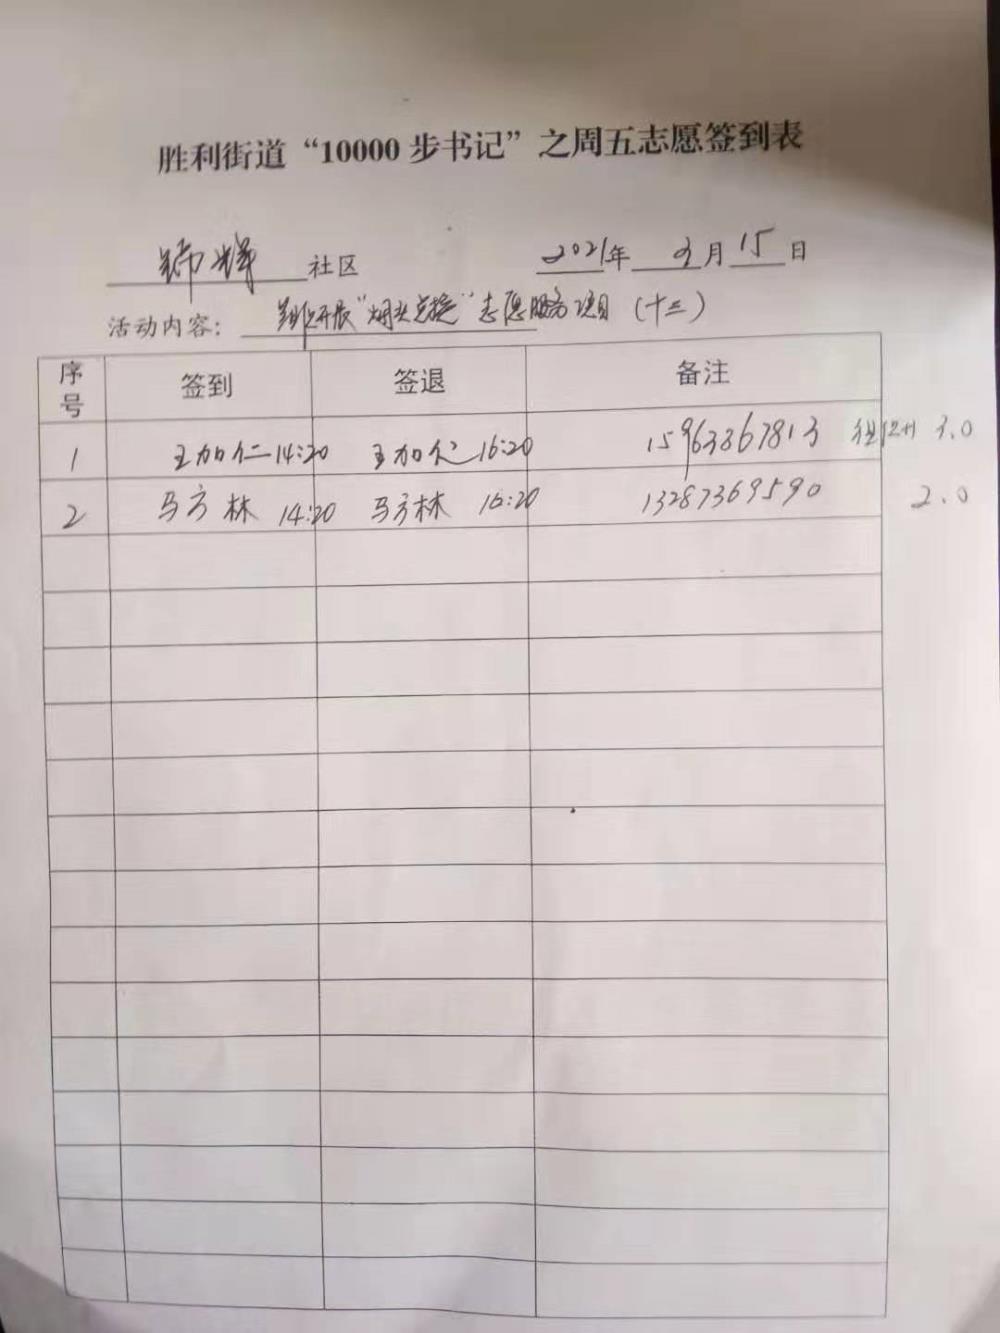 胜利街道“10000步书记”之周五志愿签到表
锦辉 社区 2021年 2月15日
活动内容： 开展“烟头兑换”志愿服务项目（十三）
序号 签到 签退 备注
1 王加仁 14:20 王加仁 16:20 15963867813 组织 3.0
2 马方林 14:20 马方林 16:20 13287369590 2.0